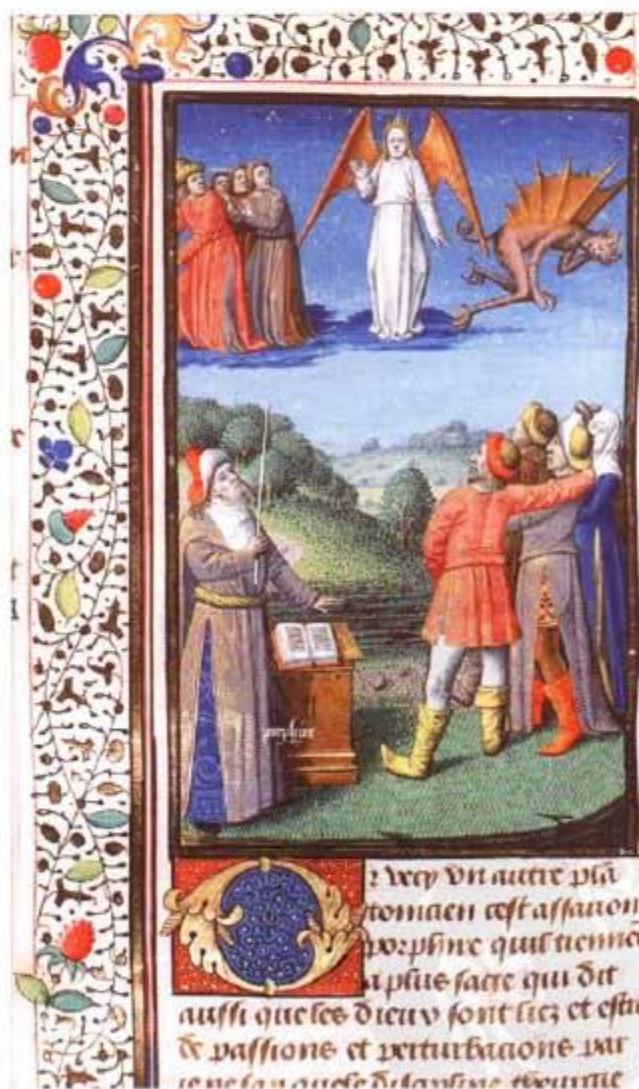 porphire
Or vecy vn autre pla
tonicien cest assauoir
porphire quil tienne
a plus sage qui dit
aussi que les dieux sont liez et
de passions et perturbacions par
ie ne quele theurgie